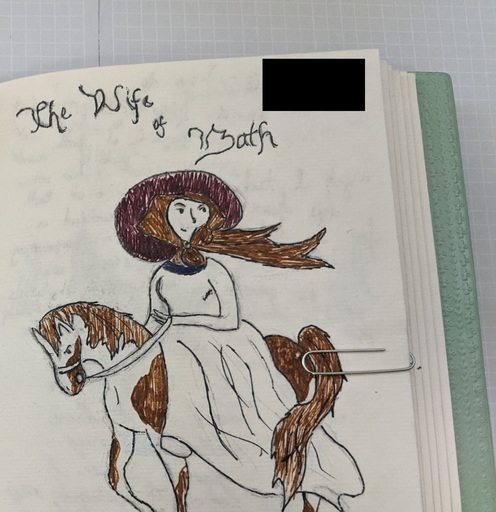 The Wife
of
Bath